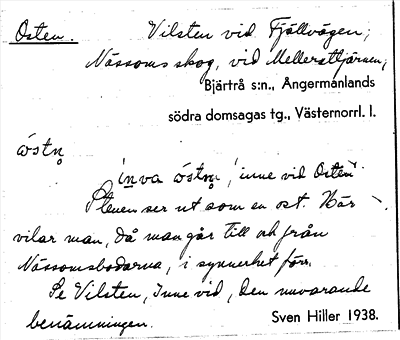 Osten. Vilsten vid Fjällvägen;
Nässoms skog, vid Mellersttjärnen,
Bjärtrå s:n., Ångermanlands
södra domsagas tg., Västernorrl. l.
ɷ́stn̥
ìnva ɷ́stn̥, 'inne vid Osten'.
Stenen ser ut som en ost. Här
vilar man, då man går till och från
Nässomsbodarna, i synnerhet förr.
Se Vilsten, Inne vid, den nuvarande
benämningen. Sven Hiller 1938.